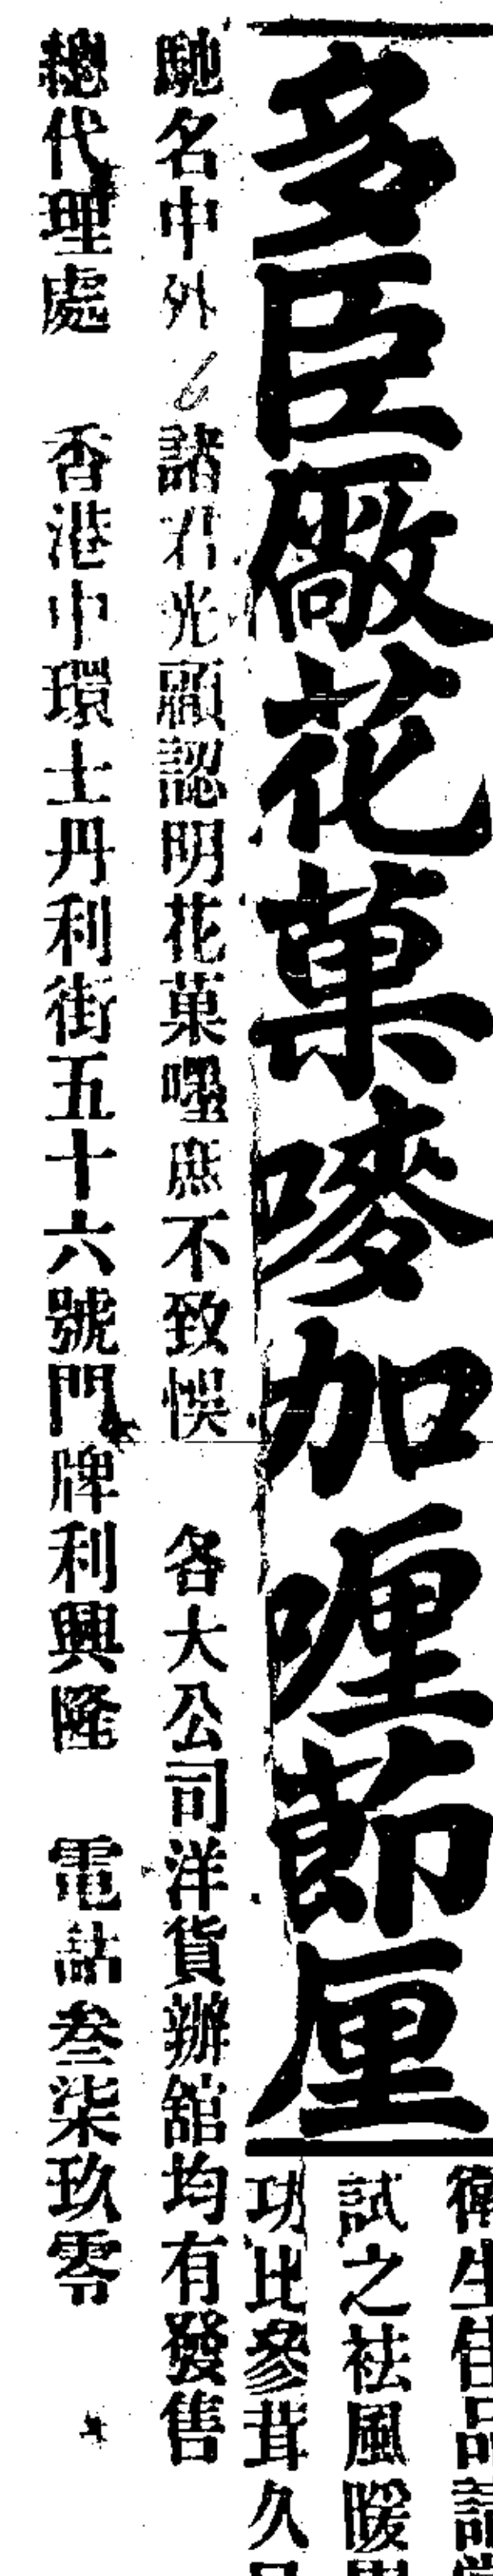 多臣廠花菓嘜加喱莭厘
衛生佳品請
試之祛風暖
功比參茸久
馳名中外 諸君光顧認明花菓嘜庶不致悞 各大公司洋貨辦舘均有發售
總代理處 香港中環士丹利街五十六號門牌利興隆 電話叁柒玖零